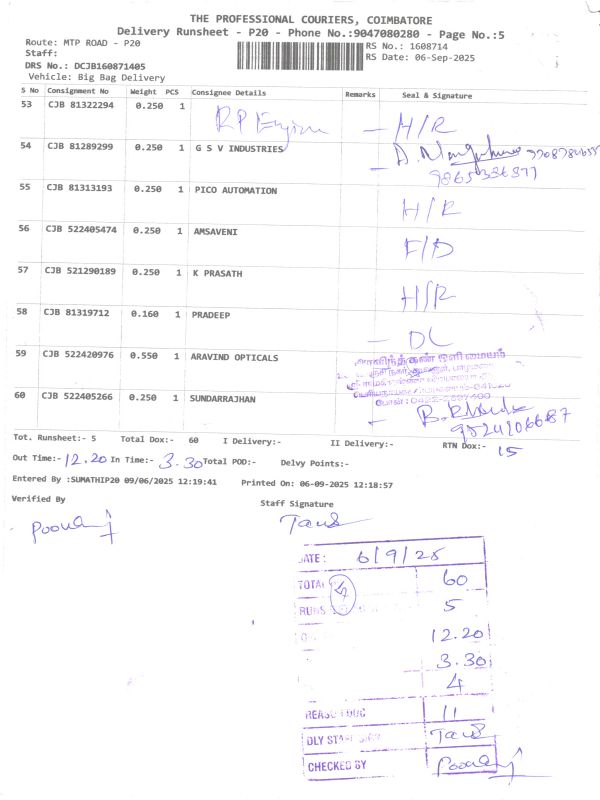 THE PROFESSIONAL COURIERS, COIMBATORE
Delivery Runsheet - P20 - Phone No.:9047080280 - Page No.:5
Route: MTP ROAD - P20 RS No.: 1608714
Staff: RS Date: 06-Sep-2025
DRS No.: DCJB160871405
Vehicle: Big Bag Delivery
S No Consignment No Weight PCS Consignee Details Remarks Seal & Signature
53 CJB 81322294 0.250 1 RP - H/R
54 CJB 81289299 0.250 1 G S V INDUSTRIES
9865336877
55 CJB 81313193 0.250 1 PICO AUTOMATION H/R
56 CJB 522405474 0.250 1 AMSAVENI F/D
57 CJB 521290189 0.250 1 K PRASATH H/R
58 CJB 81319712 0.160 1 PRADEEP - DL
59 CJB 522420976 0.550 1 ARAVIND OPTICALS
60 CJB 522405266 0.250 1 SUNDARRAJHAN
Tot. Runsheet:- 5 Total Dox:- 60 I Delivery:- II Delivery:- RTN Dox:- 15
Out Time:- 12.20 In Time:- 3.30 Total POD:- Delvy Points:-
Entered By :SUMATHIP20 09/06/2025 12:19:41 Printed On: 06-09-2025 12:18:57
Verified By Staff Signature
DATE: 6/9/25
TOTAL 60
RUNS 5
12.20
3.30
4
11
DLY
CHECKED BY